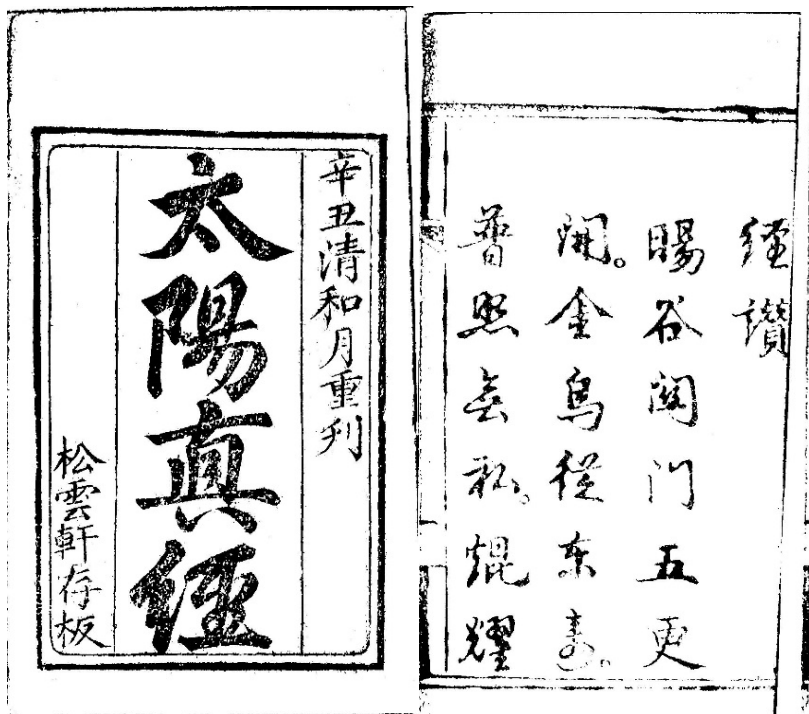 辛丑清和月重刋
太陽真經
松雲軒存板
經讚
暘谷門五更
開。金烏從東来。
普照無私。焜耀